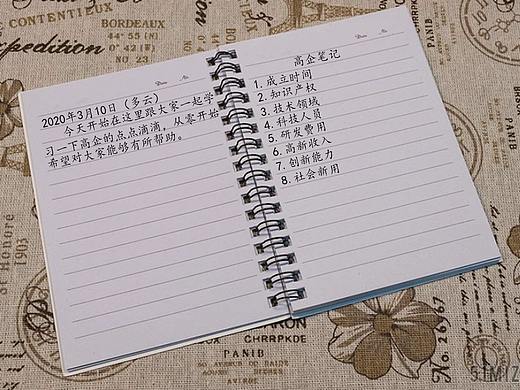 CONTENTIEUX
BORDEAUX
44° 55 (N)
0° 42 (W)
NO. 23
xpedition
PANIB
St Honoré
1903
2020年3月10日（多云）
今天开始在这里跟大家一起学
习一下高企的点点滴滴，从零开始
希望对大家能够有所帮助。
高企笔记
1. 成立时间
2. 知识产权
3. 技术领域
4. 科技人员
5. 研发费用
6. 高新收入
7. 创新能力
8. 社会新用
CHRRPKDE
PANIB
AVIRONS
No. 26,67